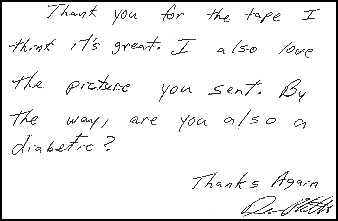 Thank you for the tape I
think it's great. I also love
the picture you sent. By
the way, are you also a
diabetic?
Thanks Again